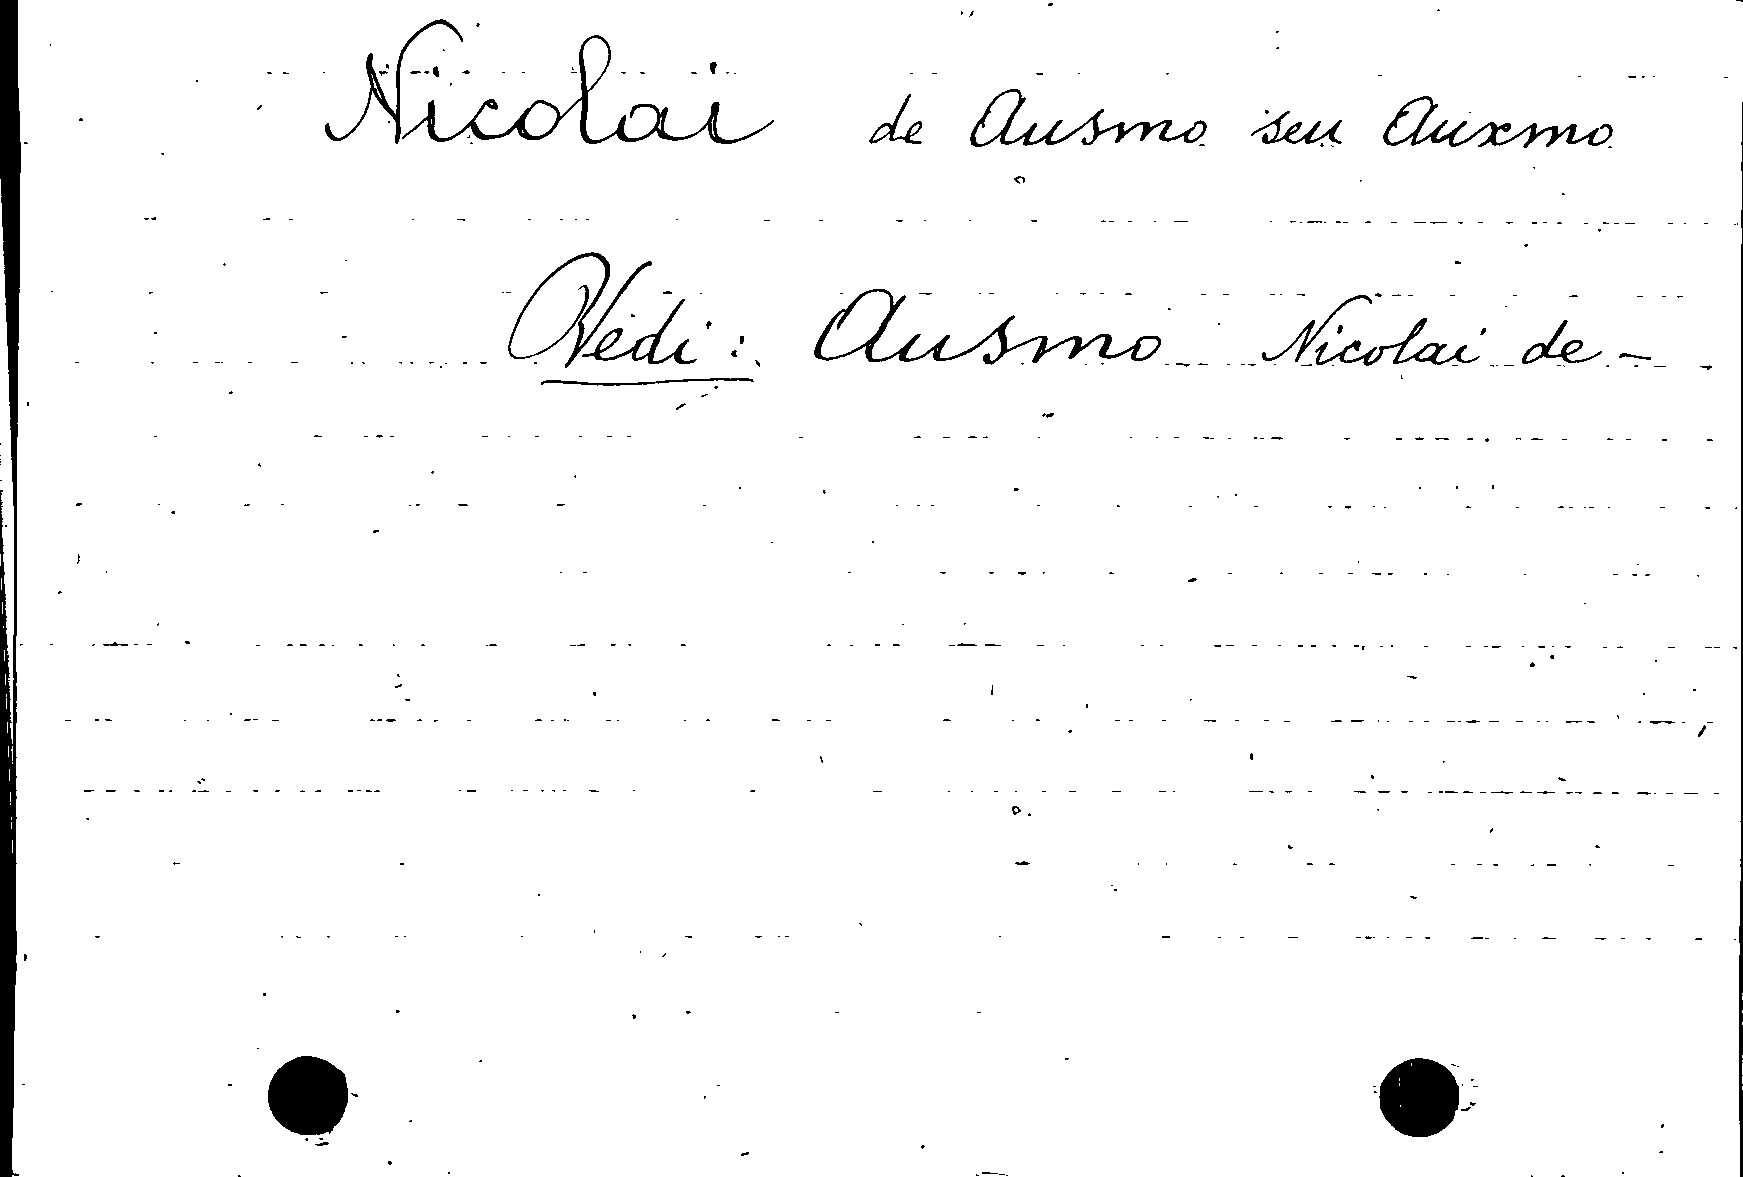 Nicolai de Ausmo seu Auxmo
Vedi: Ausmo Nicolai de -